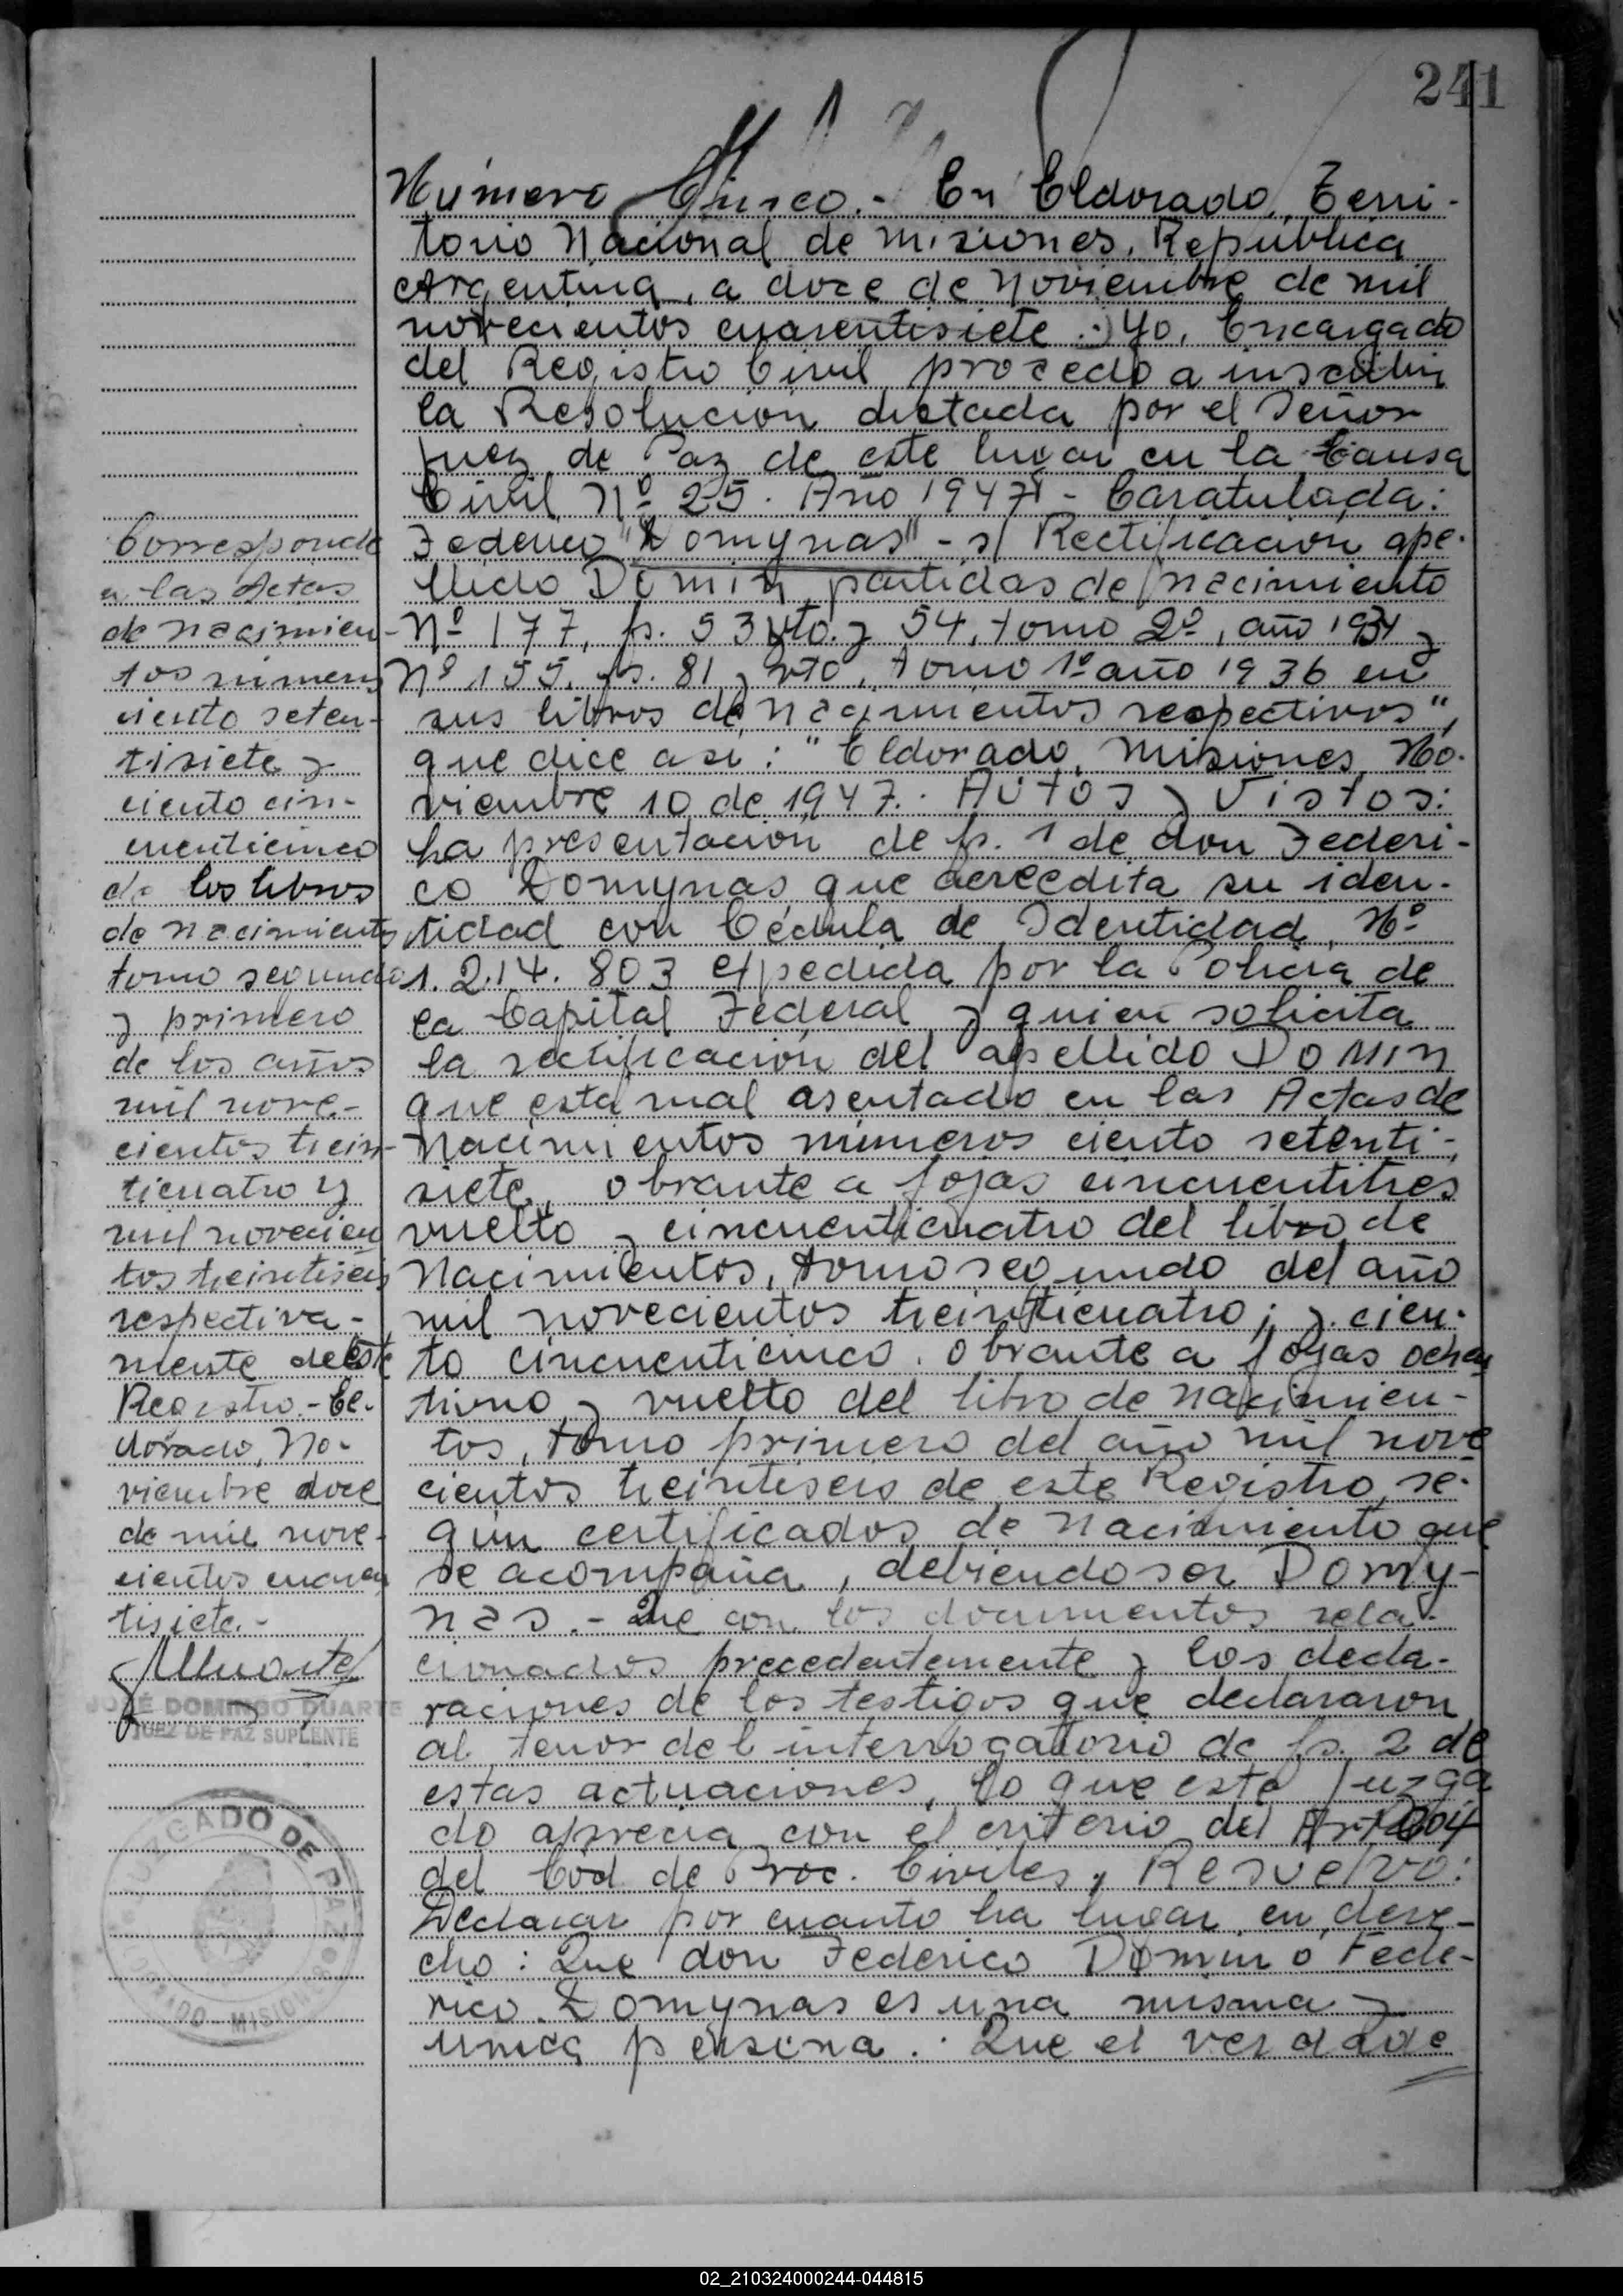 241
Número Cinco.- En Eldorado, Terri-
torio Nacional de Misiones, República
Argentina, a doce de Noviembre de mil
novecientos cuarentisiete.: Yo, Encargado
del Registro Civil procedo a inscribir
la Resolución dictada por el Señor
Juez de Paz de este lugar en la Causa
Civil Nº 25. Año 1947 - Caratulada:
Federico "Domynas" - s/ Rectificación ape-
llido Domin, partidas de nacimiento
Nº 177, fs. 53 vto. y 54, tomo 2º, año 1934 y
Nº 155, fs. 81 y vto, tomo 1º año 1936 en
sus libros de nacimientos respectivos",
que dice así: "Eldorado, Misiones, No-
viembre 10 de 1947.- Autos y Vistos:
La presentación de fs. 1 de don Federi-
co Domynas que acreedita su iden-
tidad con Cédula de Identidad, Nº
1.214.803 expedida por la Policía de
la Capital Federal y quien solicita
la rectificación del apellido Domin
que está mal asentado en las Actas de
Nacimientos números ciento setenti-
siete, obrante a fojas cincuentitres
vuelto y cincuenticuatro del libro de
Nacimientos, tomo segundo del año
mil novecientos treinticuatro; y cien-
to cincuenticinco, obrante a fojas ochen
tiuno y vuelto del libro de nacimien-
tos, tomo primero del año mil nove
cientos treintiseis de este Registro, se-
gún certificados de nacimiento que
se acompaña, debiendo ser Domy-
nas.- Que con los documentos rela-
cionados precedentemente y los decla-
raciones de los testigos que declararon
al tenor del interrogatorio de fs. 2 de
estas actuaciones, lo que este Juzga
do aprecia con el criterio del Art. 204
del Cod de Proc. Civiles, Resuelvo:
Declarar por cuanto ha lugar en dere-
cho: Que don Federico Domin o Fede-
rico Domynas es una misma y
única persona.: Que el verdade
Corresponde
a las Actas
de nacimien-
tos números
ciento seten-
tisiete y
ciento cin-
cuenticinco
de los libros
de nacimiento
tomo segundo
y primero
de los años
mil nove-
cientos trein-
ticuatro y
mil novecien
tos treintiseis
respectiva-
mente de este
Registro.- El-
dorado, No-
viembre doce
de mil nove-
cientos cuaren
tisiete.-
JOSÉ DOMINGO DUARTE
JUEZ DE PAZ SUPLENTE
JUZGADO DE PAZ
ELDORADO - MISIONES
02_210324000244-044815